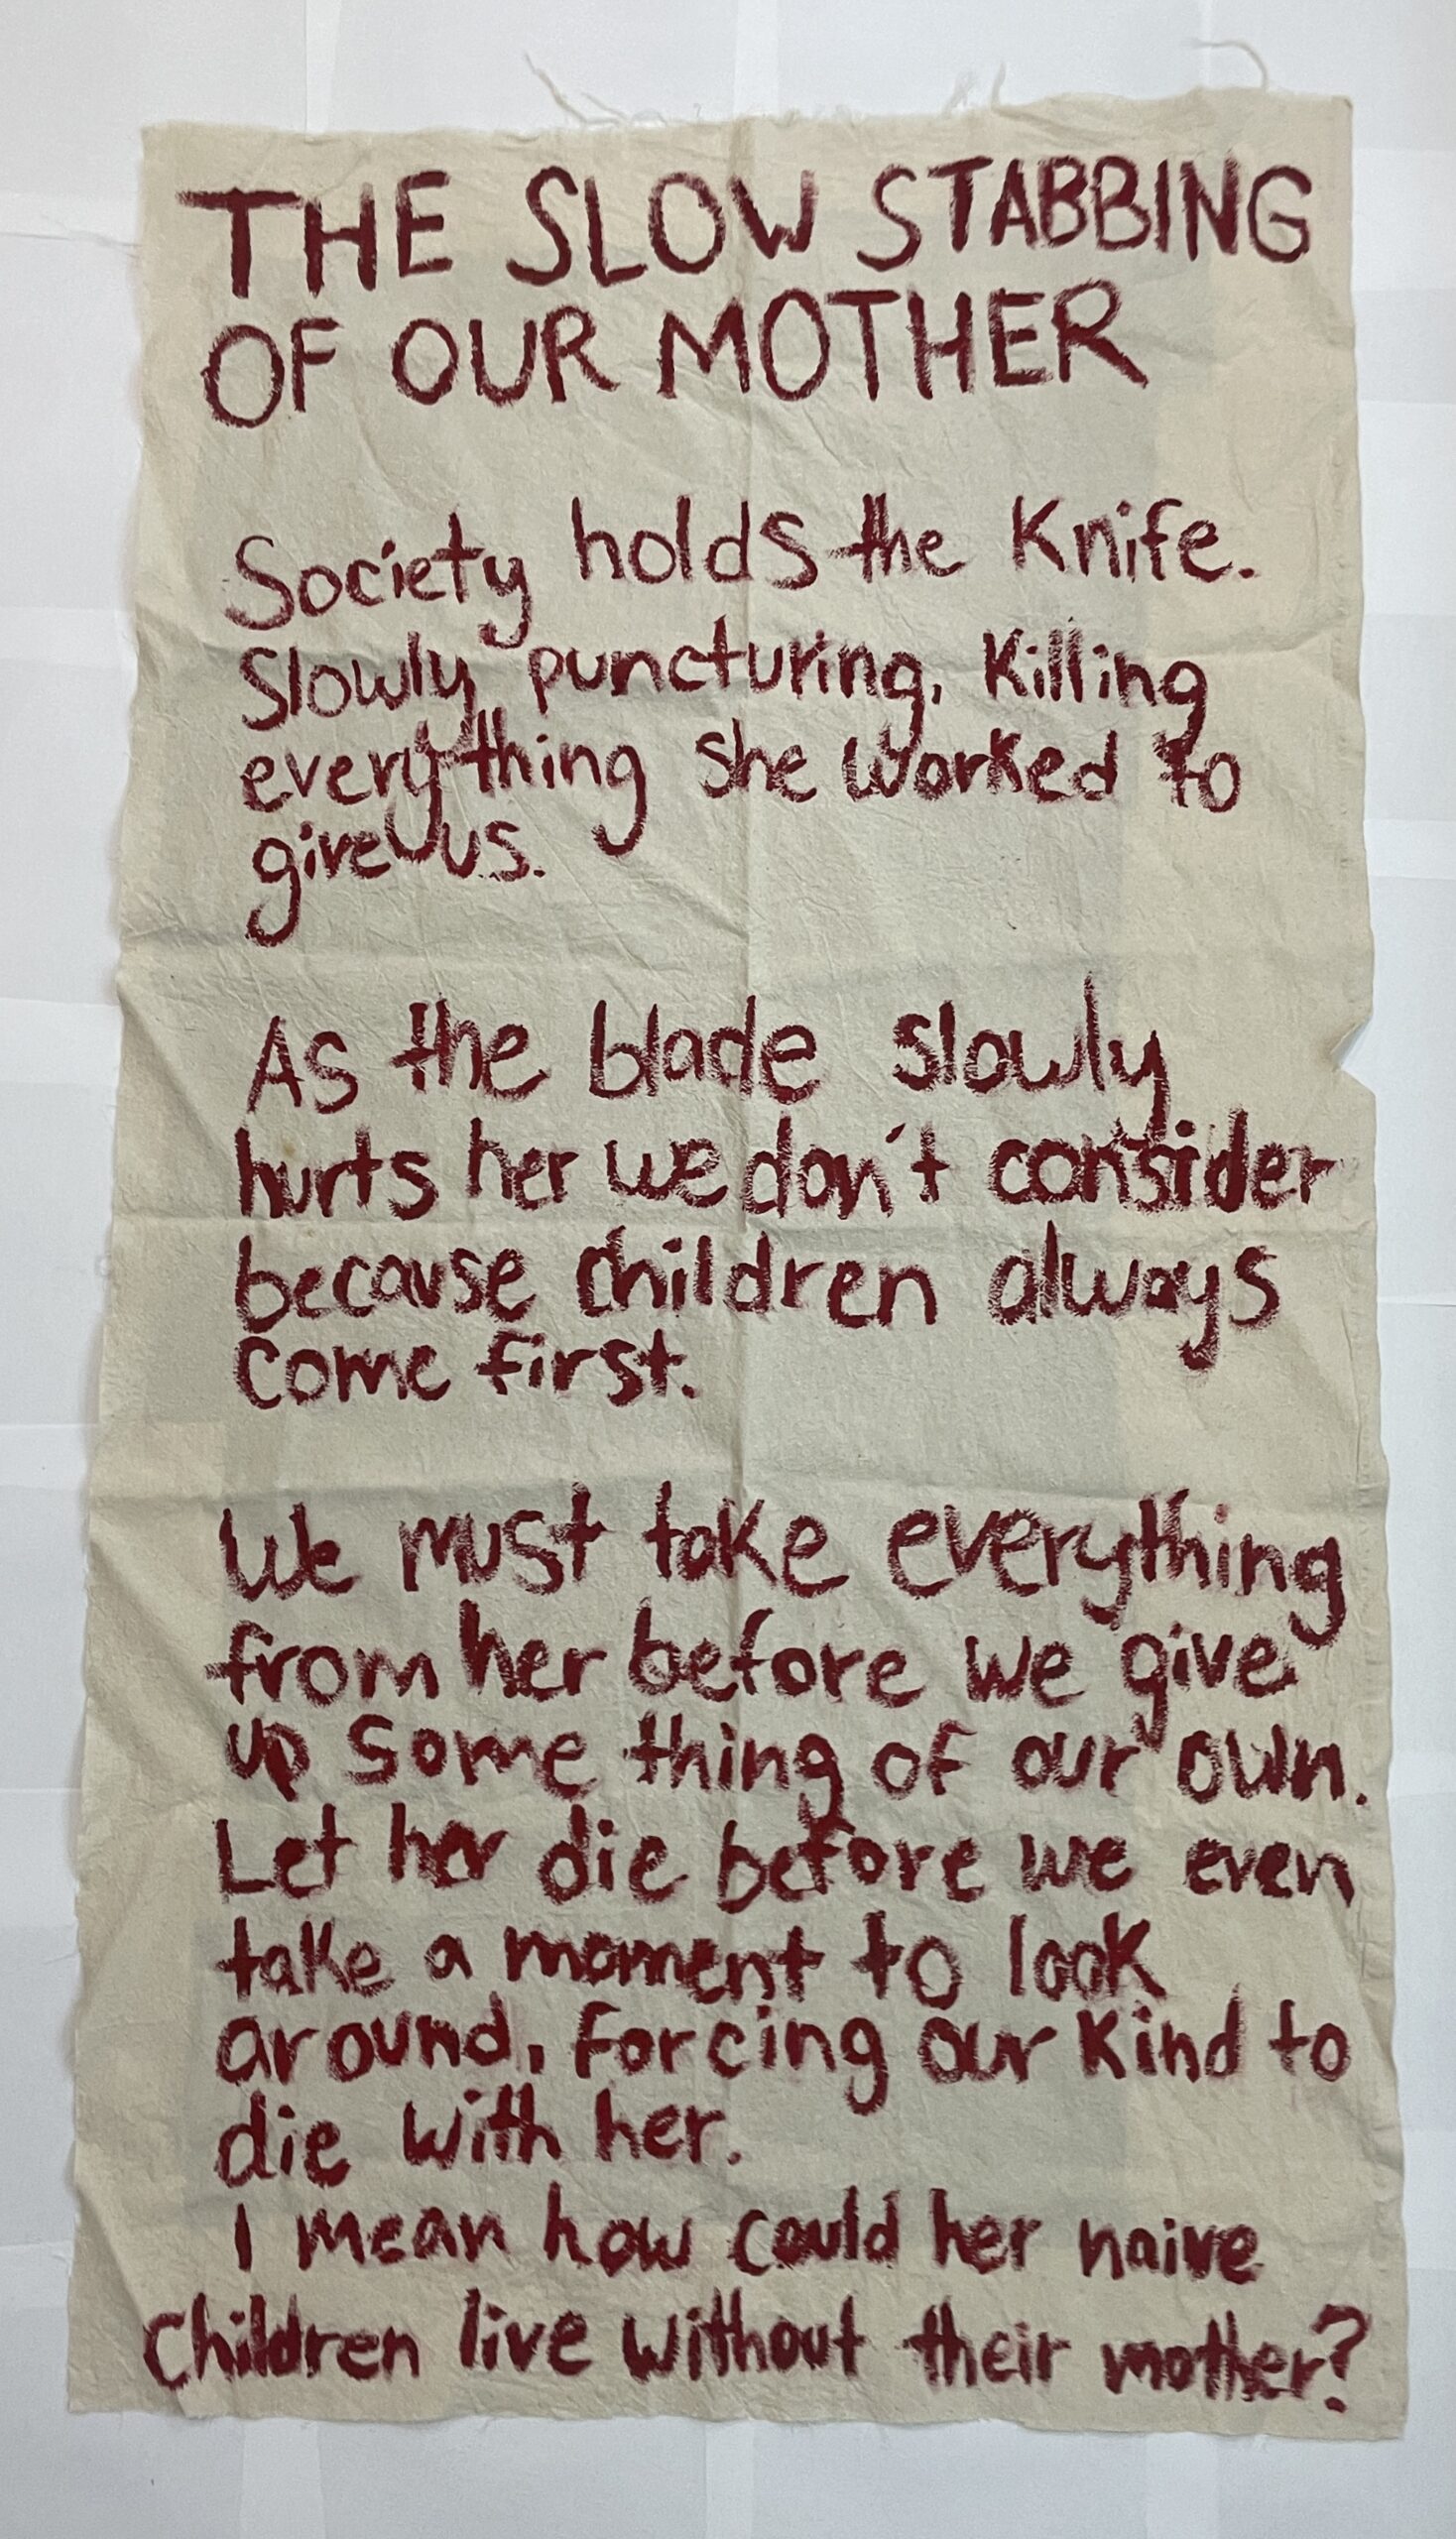 THE SLOW STABBING
OF OUR MOTHER
Society holds the Knife.
Slowly puncturing, Killing
everything she worked to
give us.
As the blade slowly
hurts her we don't consider
because children always
come first.
We must take everything
from her before we give
up some thing of our own.
Let her die before we even
take a moment to look
around, forcing our kind to
die with her.
I mean how could her naive
Children live without their mother?